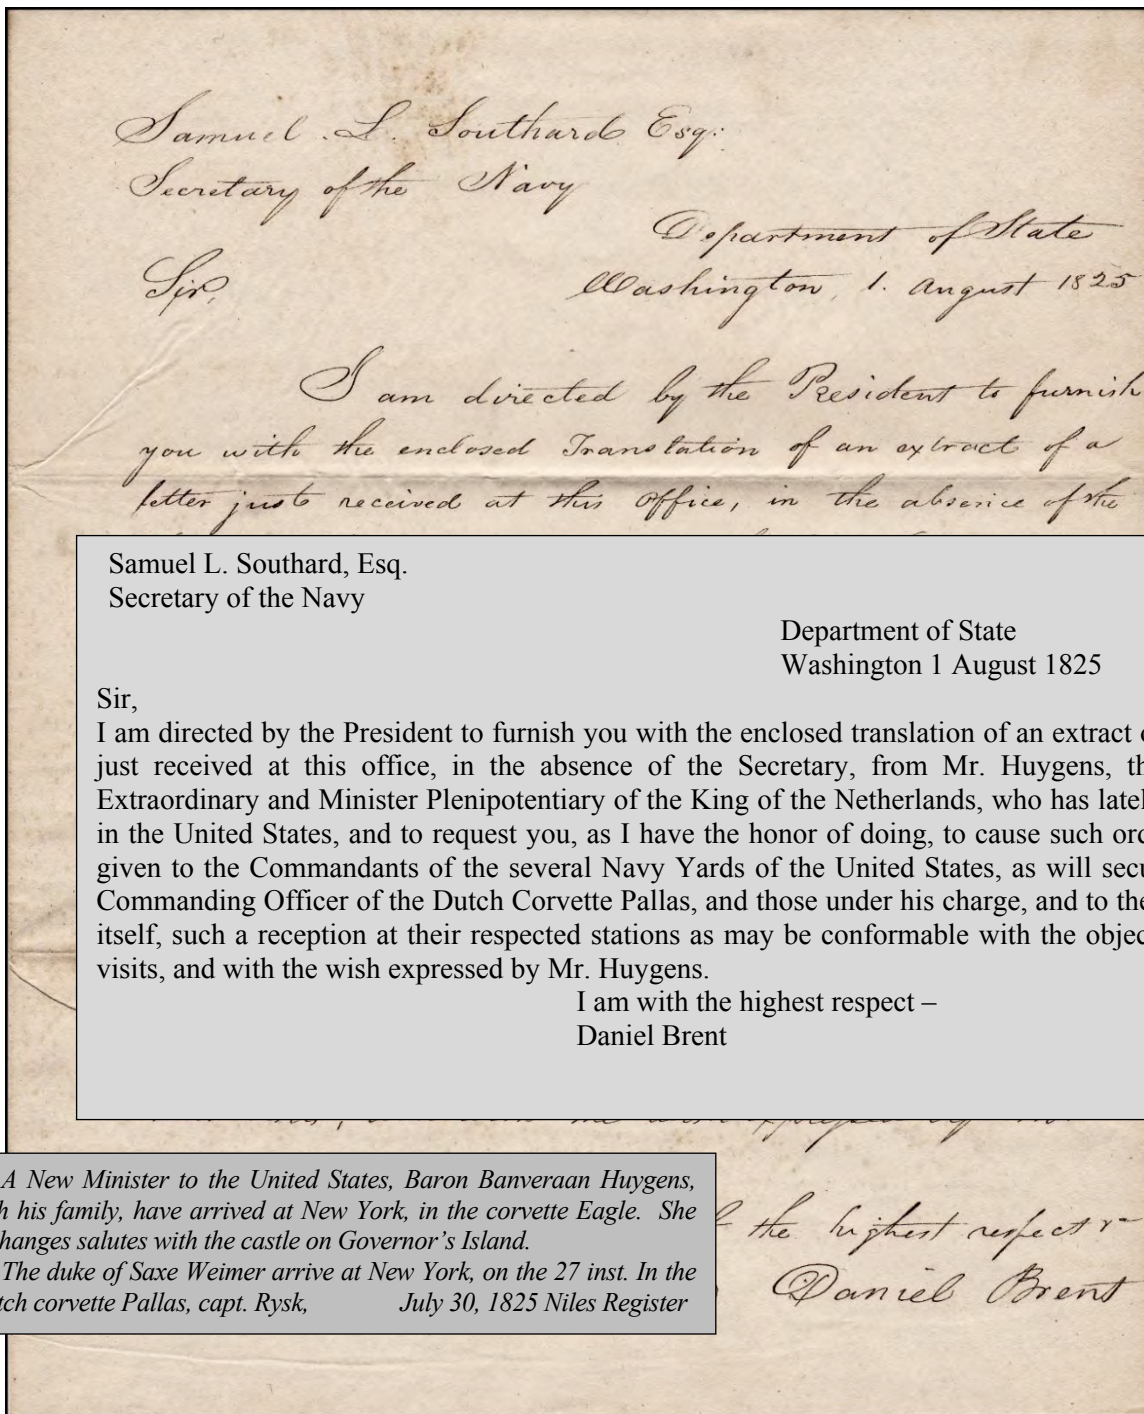 Samuel . L. Southard Esq:
Secretary of the Navy
Department of State
Sir,
Washington, 1. August 1825
I am directed by the President to furnish
you with the enclosed Translation of an extract of a
letter just received at this Office, in the absence of the
Samuel L. Southard, Esq.
Secretary of the Navy
Department of State
Washington 1 August 1825
Sir,
I am directed by the President to furnish you with the enclosed translation of an extract
just received at this office, in the absence of the Secretary, from Mr. Huygens, th
Extraordinary and Minister Plenipotentiary of the King of the Netherlands, who has latel
in the United States, and to request you, as I have the honor of doing, to cause such ord
given to the Commandants of the several Navy Yards of the United States, as will secu
Commanding Officer of the Dutch Corvette Pallas, and those under his charge, and to the
itself, such a reception at their respected stations as may be conformable with the objec
visits, and with the wish expressed by Mr. Huygens.
I am with the highest respect –
Daniel Brent
A New Minister to the United States, Baron Banveraan Huygens,
h his family, have arrived at New York, in the corvette Eagle. She
hanges salutes with the castle on Governor's Island.
The duke of Saxe Weimer arrive at New York, on the 27 inst. In the
tch corvette Pallas, capt. Rysk, July 30, 1825 Niles Register
the highest respect
Daniel Brent